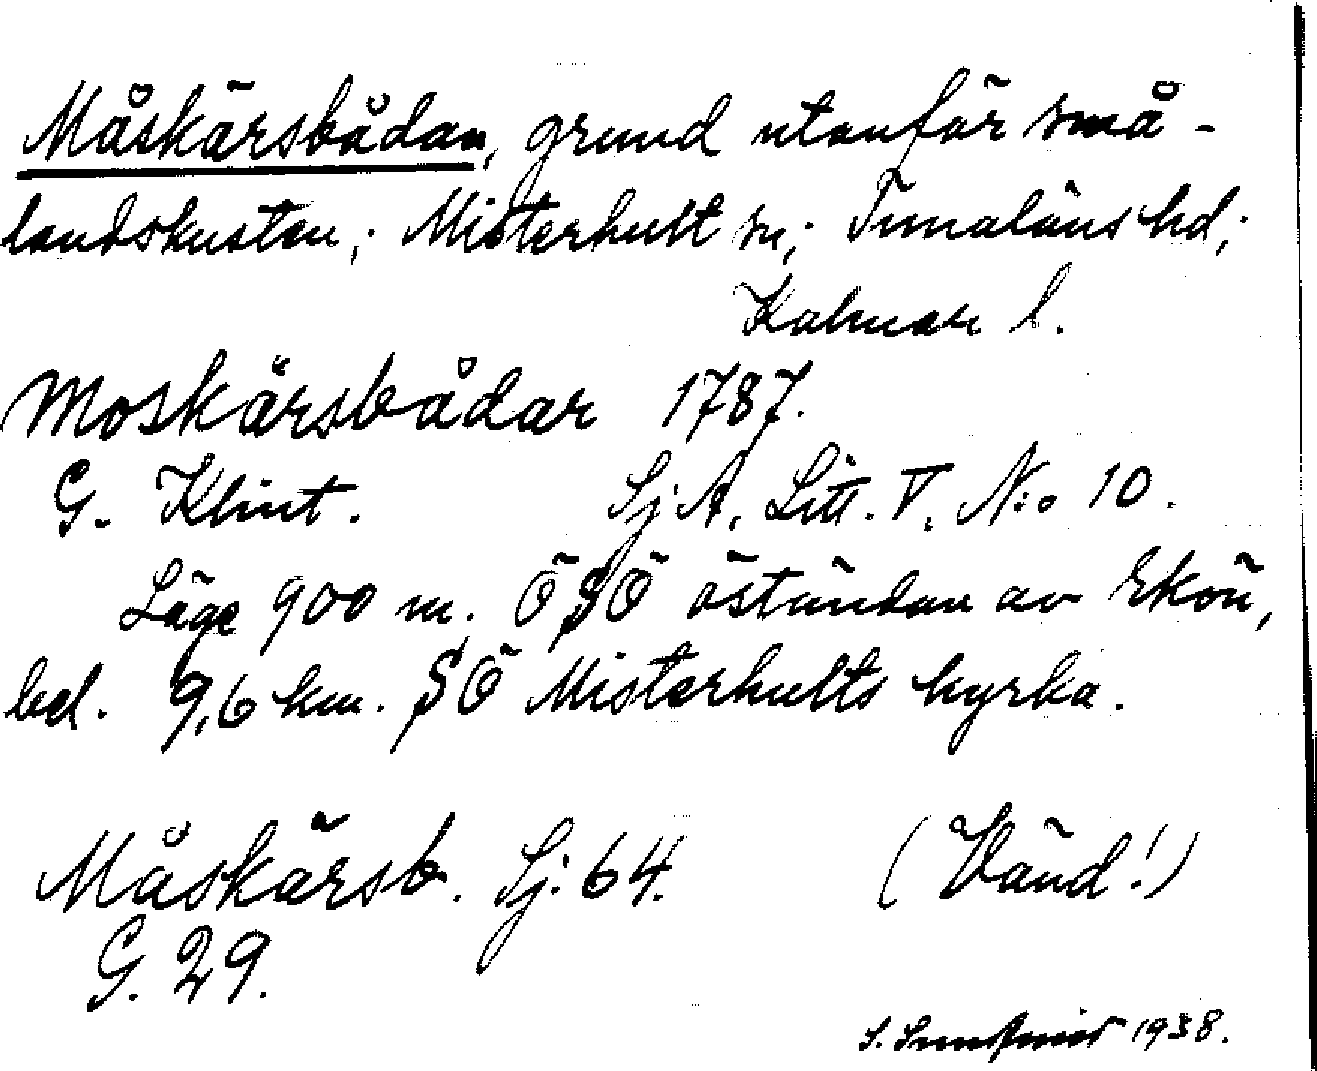 Måskärsbådan, grund utanför små-
landskusten; Misterhult sn; Tunaläns hd;
Kalmar l.
Moskärsbådar 1787.
G. Klint. Sj A. Litt. V. N:o 10.
Läge 900 m. ÖSÖ östandan av Ekön,
bel. 9,6 km. SÖ Misterhults kyrka.
Måskärsb. Sj. 64. (Vänd!)
G. 29.
S. 1938.